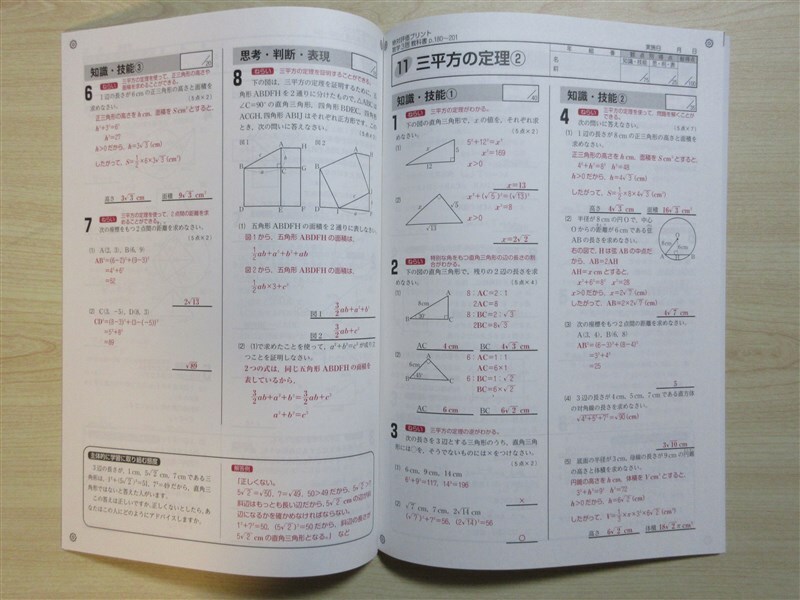 知識・技能③
6 ねらい 三平方の定理を使って、正三角形の高さや面積を求めることができる。
3辺の長さが6cmの正三角形の高さと面積を
(5点×2)
正三角形の高さをh cm, 面積をS cm²とすると,
h²+3²=6²
h²=27
h>0だから, h=3√3 (cm)
したがって, S=1/2×6×3√3 (cm²)
高さ 3√3 cm 面積 9√3 cm²
7 ねらい 三平方の定理を使って、2点間の距離を求めることができる。
次の座標をもつ2点間の距離を求めなさい。
(5点×2)
(1) A(2, 3), B(6, 9)
AB²=(6-2)²+(9-3)²
=4²+6²
=52
2√13
(2) C(3, -5), D(8, 3)
CD²=(8-3)²+{3-(-5)}²
=5²+8²
=89
√89
主体的に学習に取り組む態度
3辺の長さが, 1cm, 5√2 cm, 7cmである三
角形は, 1²+(5√2)²=51, 7²=49だから, 直角三
角形ではないと答えた人がいます。
この答えは正しいですか。正しくないとしたら, あ
なたはこの人にどのようにアドバイスしますか。
解答例
(正しくない。
5√2=√50, 7=√49, 50>49だから, 5√2>7
斜辺はもっとも長い辺だから, 5√2 cmの辺が斜
辺になるかを確かめなければならない。
1²+7²=50, (5√2)²=50だから, 斜辺の長さが
5√2 cmの直角三角形となる。) など
思考・判断・表現
8 ねらい 三平方の定理を証明することができる。
下の図は, 三平方の定理を証明するために, 五
角形ABDFHを2通りに分けたもので, △ABCは
∠C=90°の直角三角形, 四角形BDEC, 四角形
ACGH, 四角形ABIJはそれぞれ正方形です。この
とき, 次の問いに答えなさい。
(5点×3)
図1 図2
(1) 五角形ABDFHの面積を2通りに表しなさい。
図1から, 五角形ABDFHの面積は,
1/2ab+a²+b²+ab
図2から, 五角形ABDFHの面積は,
1/2ab×3+c²
図1 3/2ab+a²+b²
図2 3/2ab+c²
(2) (1)で求めたことを使って, a²+b²=c²が成り立
つことを証明しなさい。
2つの式は, 同じ五角形ABDFHの面積を
表しているから,
3/2ab+a²+b²=3/2ab+c²
a²+b²=c²
観点別評価プリント
数学3啓 教科書p.180~201
11 三平方の定理②
年 組 番
実施日 月 日
名前
知識・技能
知識・技能①
1 ねらい 三平方の定理がわかる。
下の図の直角三角形で, xの値を, それぞれ求
めなさい。
(5点×2)
(1)
5²+12²=x²
x²=169
x>0
x=13
(2)
x²+(√5)²=(√13)²
x²=8
x>0
x=2√2
2 ねらい 特別な角をもつ直角三角形の辺の長さの割合がわかる。
下の図の直角三角形で, 残りの2辺の長さを求
めなさい。
(5点×4)
(1)
8:AC=2:1
2AC=8
8:BC=2:√3
2BC=8√3
AC 4 cm BC 4√3 cm
(2)
6:AC=1:1
AC=6×1
6:BC=1:√2
BC=6×√2
AC 6 cm BC 6√2 cm
3 ねらい 三平方の定理の逆がわかる。
次の長さを3辺とする三角形のうち, 直角三角
形には○を, そうでないものには×をつけなさい。
(5点×2)
(1) 6cm, 9cm, 14cm
6²+9²=117, 14²=196
×
(2) √7 cm, 7cm, 2√14 cm
(√7)²+7²=56, (2√14)²=56
○
知識・技能②
4 ねらい 三平方の定理を使って、問題を解くことができる。
次の問いに答えなさい。
(5点×7)
(1) 1辺の長さが8cmの正三角形の高さと面積を求
めなさい。
正三角形の高さをh cm, 面積をS cm²とすると,
h²+4²=8² h²=48
h>0だから, h=4√3 (cm)
したがって, S=1/2×8×4√3 (cm²)
高さ 4√3 cm 面積 16√3 cm²
(2) 半径が8cmの円Oで, 中心
Oからの距離が6cmである弦
ABの長さを求めなさい。
右の図で, Hは弦ABの中点だ
から, AB=2AH
AH=x cmとすると,
x²+6²=8² x²=28
x>0だから, x=2√7 (cm)
したがって, AB=2×2√7 (cm)
4√7 cm
(3) 次の座標をもつ2点間の距離を求めなさい。
A(3, 4), B(6, 8)
AB²=(6-3)²+(8-4)²
=3²+4²
=25
5
(4) 3辺の長さが4cm, 5cm, 7cmである直方体
の対角線の長さを求めなさい。
√4²+5²+7²=√90 (cm)
3√10 cm
(5) 底面の半径が3cm, 母線の長さが9cmの円錐
の高さと体積を求めなさい。
円錐の高さをh cm, 体積をV cm³とすると,
3²+h²=9² h²=72
h>0だから, h=6√2 (cm)
したがって, V=1/3×π×3²×6√2 (cm³)
高さ 6√2 cm 体積 18√2π cm³